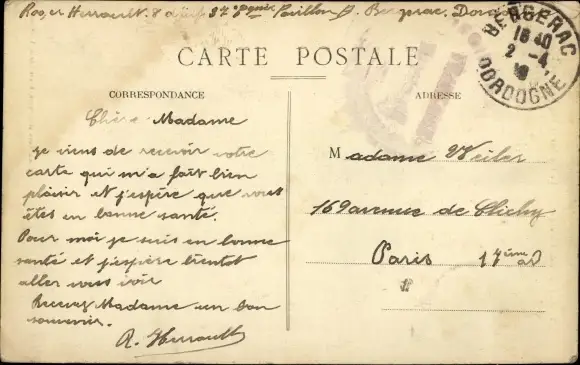 Roger Herrault. 8 3e Pavillon A. Bergerac. Dord
BERGERAC
18 40
2 -4
DORDOGNE
CARTE POSTALE
CORRESPONDANCE
ADRESSE
Chère Madame
je viens de recevoir votre
carte qui m'a fait bien
plaisir et j'espère que vous
êtes en bonne santé.
Pour moi je suis en bonne
santé et j'espère bientôt
aller vous voir
Recevez Madame un bon
souvenir.
R. Herrault
Madame Weiler
169 avenue de Clichy
Paris 17ème